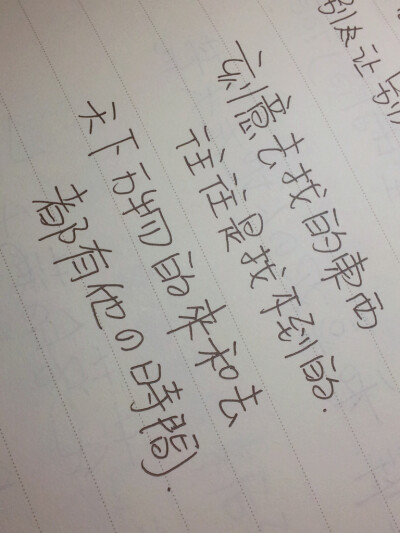 别
刻意去找的東西
往往是找不到的.
天下万物的来和去
都有他の時間.